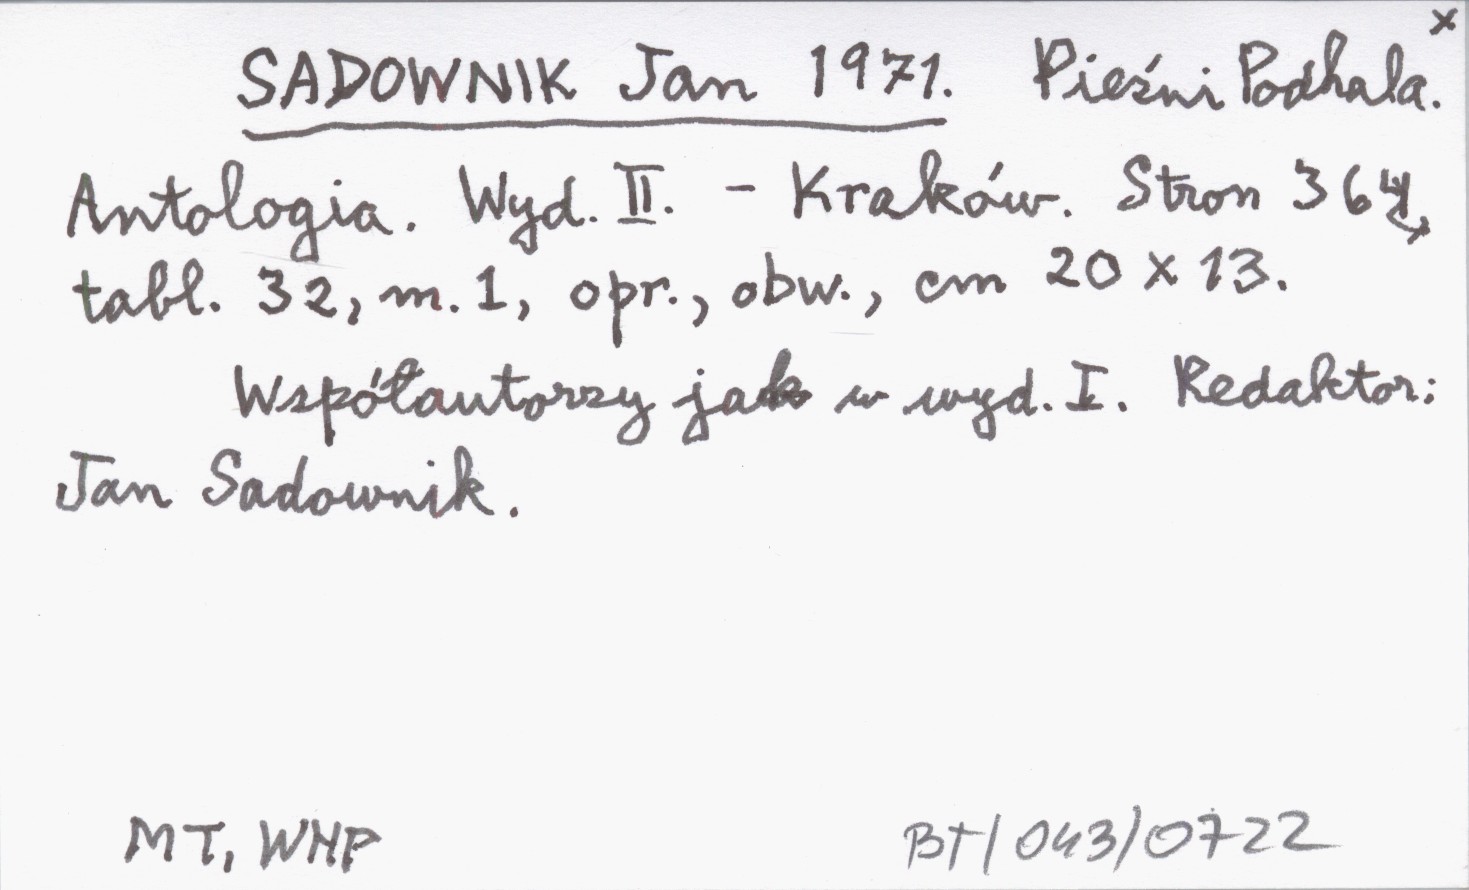 x
SADOWNIK Jan 1971. Pieśni Podhala.
Antologia. Wyd. II. - Kraków. Stron 364,
tabl. 32, m. 1, opr., obw., cm 20 x 13.
Współautorzy jak w wyd. I. Redaktor:
Jan Sadownik.
MT, WHP BT/043/0722